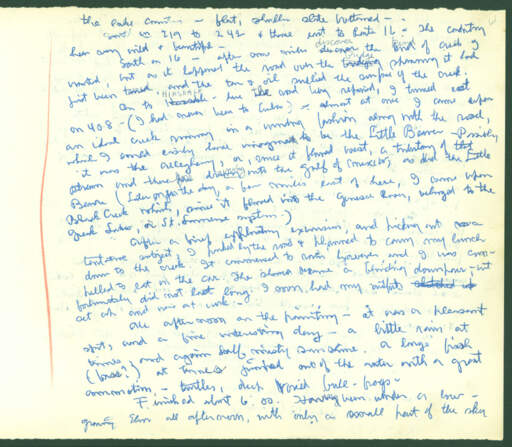 the lake country — flat, shallow slate bottomed —.
South to 219 to 242 & thence east to Route 16 — The country
here very wild & beautiful —
South on 16 — after some miles discover the kind of creek I
wanted, but as it happened the road over the bridge spanning it had
just been tarred and the tar & oil sullied the surface of the creek.
On to Hinsdale, here the road being repaired, I turned east
on 408 — (I had never been to Cuba) — almost at once I came upon
an ideal creek running in a winding fashion along with the road,
which I could easily have imagined to be the Little Beaver — Possibly
it was the Allegheny, or, since it flowed west, a tributary of that
stream and therefore draining into the gulf of mexico, as did the Little
Beaver (Later on in the day, a few miles east of here, I came upon
Black Creek which, since it flowed into the Genesee River, belonged to the
Great Lakes, or St. Lawrence system.)
After a brief exploratory excursion, and picking out a
tentative subject, I parked by the road & planned to carry my lunch
down to the creek. It commenced to rain however, and I was com-
pelled to eat in the car. The shower became a drenching downpour — it
fortunately did not last long. I soon had my outfit
set up and was at work. —
All afternoon on the painting — it was a pleasant
spot, and a fine interesting day — a little rain at
times, and again soft misty sunshine. A large fish
(bass?) at times jumped out of the water with a great
commotion — turtles, deep voiced bull-frogs —
Finished about 6:00. Having been under a low-
growing Elm all afternoon, with only a small part of the sky